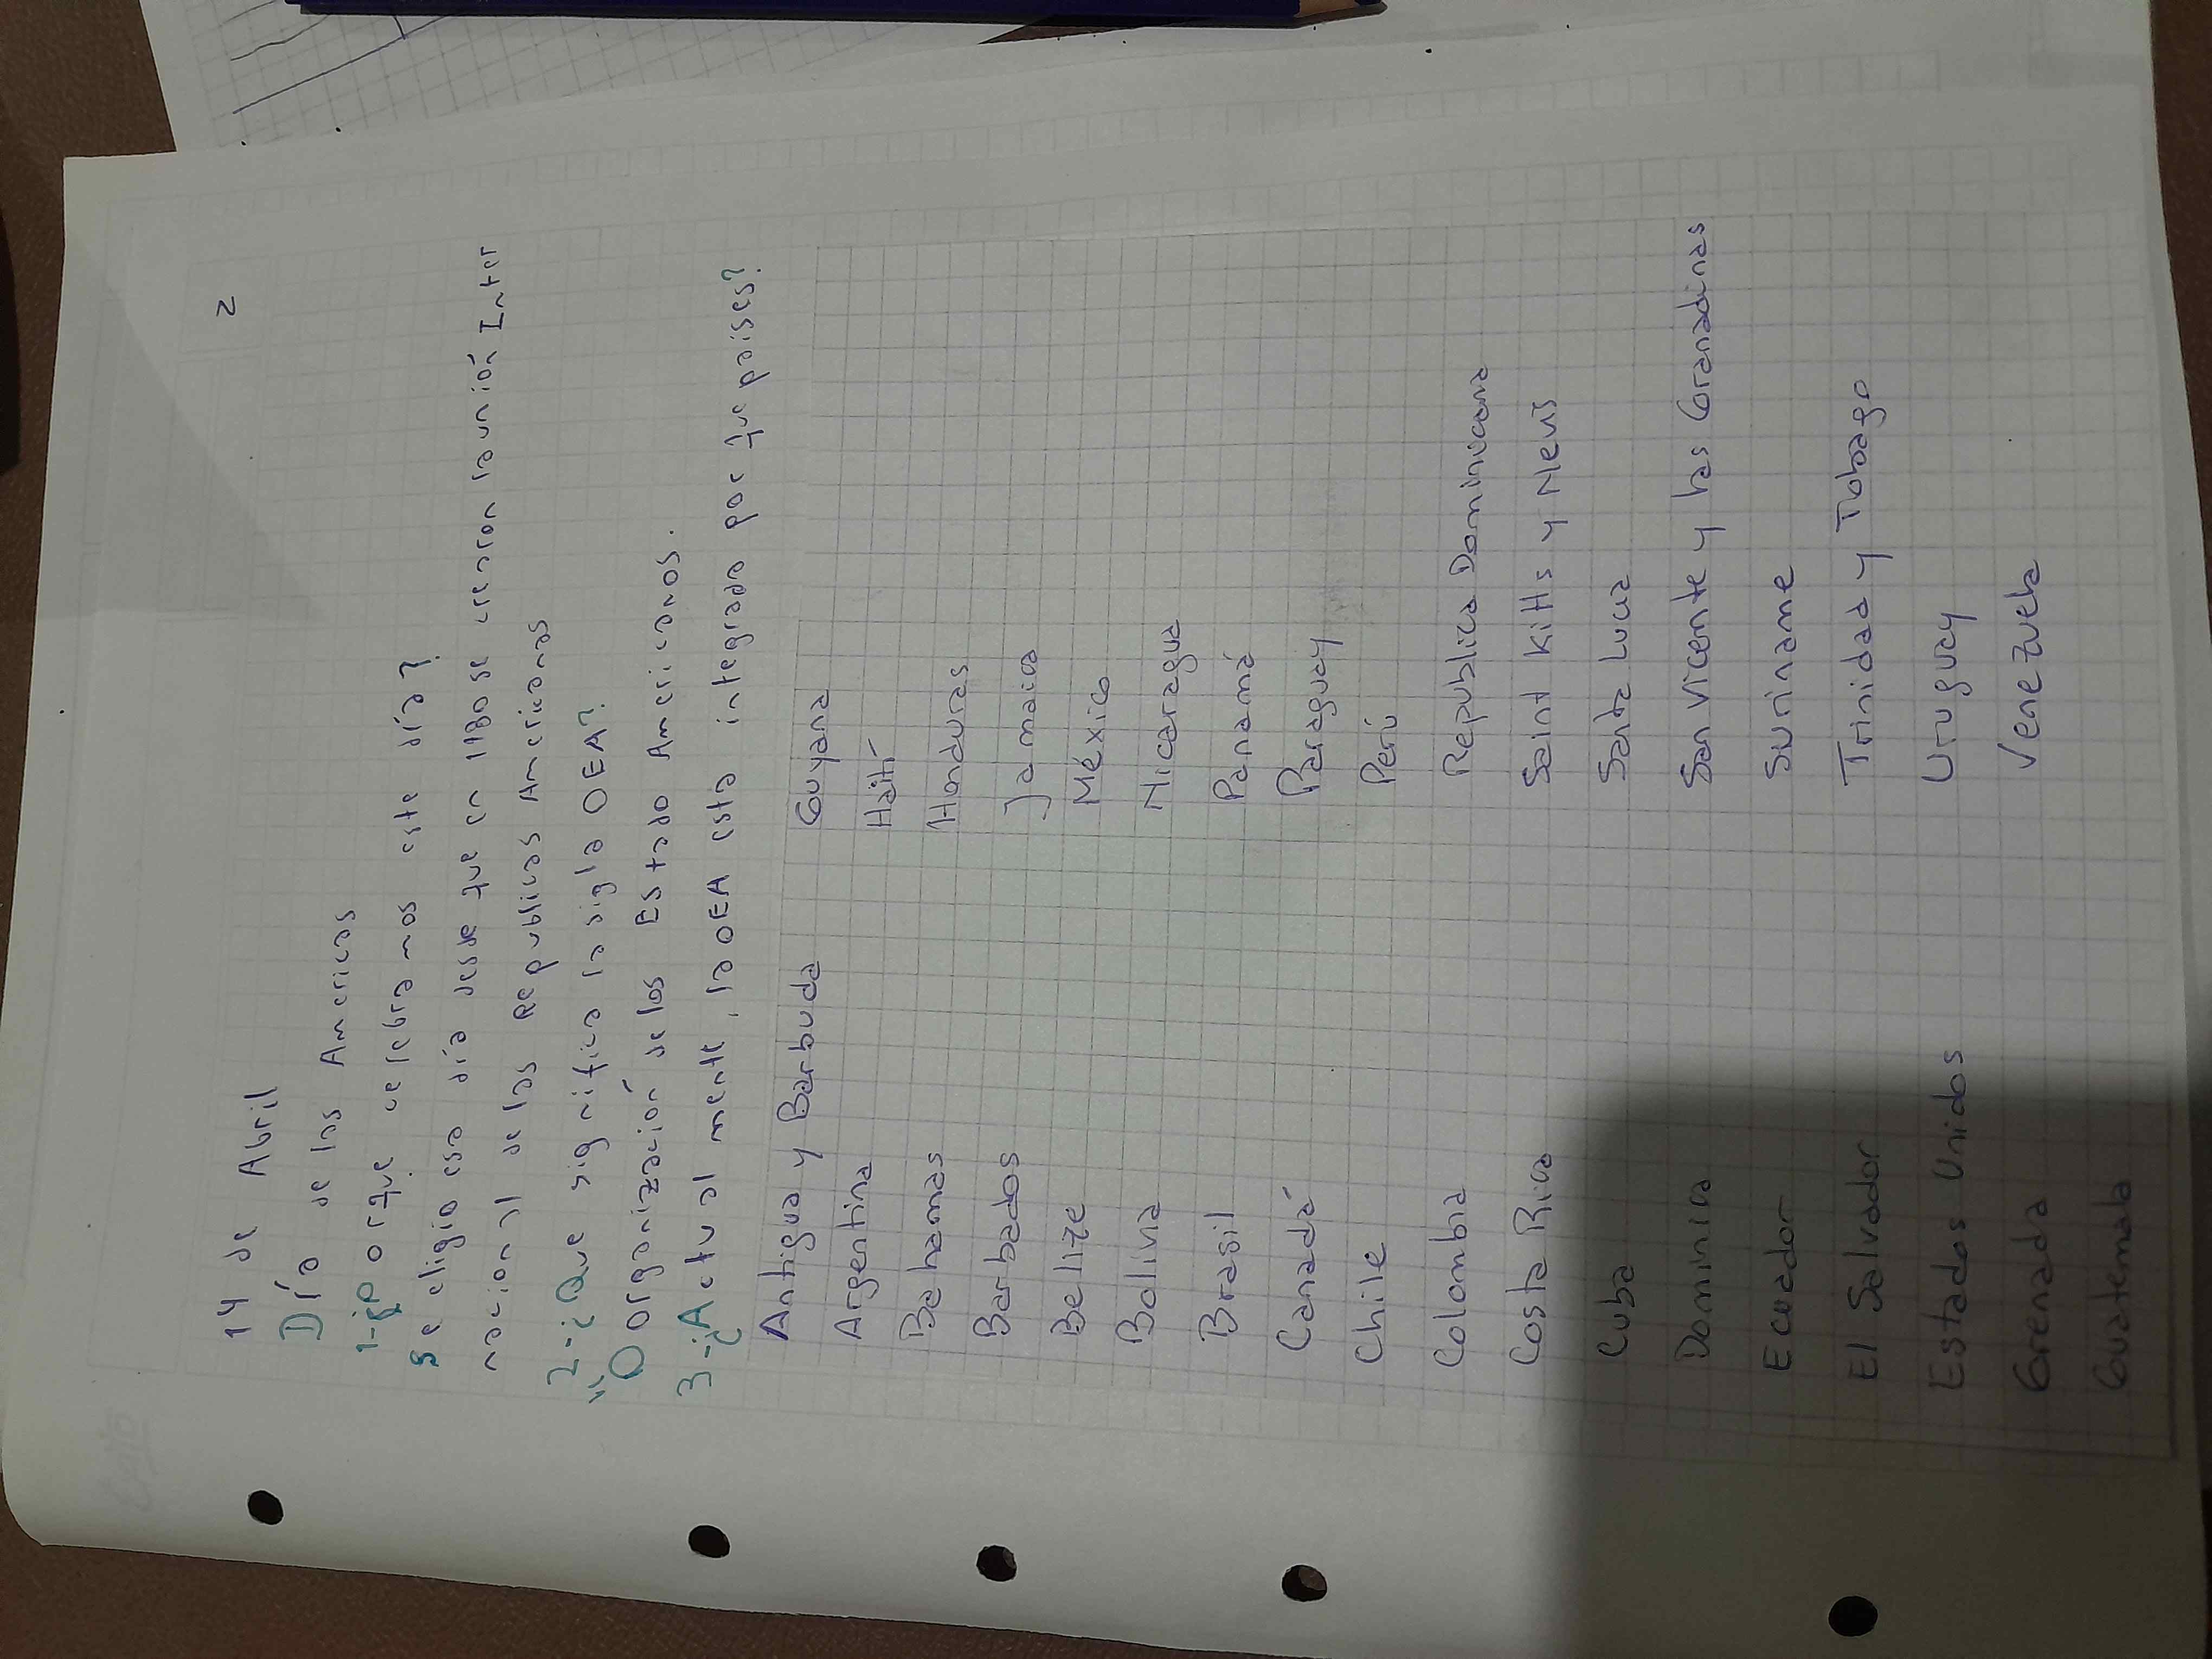 2
14 de Abril
Día de las Americas
1-¿Porque celebramos este día?
Se eligio esa día desde que en 1180 se crearon raunión Inter
nacional de las Republicas Americanas
2-¿Que significa la sigla OEA?
"Organización de los Estado Americanos.
3-¿Actualmente, la OEA esta integrada por que paises?
Antigua y Barbuda
Argentina
Bahamas
Barbados
Belize
Bolivia
Brasil
Canadá
Chile
Colombia
Costa Rica
Cuba
Dominica
Ecuador
El Salvador
Estados Unidos
Grenada
Guatemala
Guyana
Haití
Honduras
Jamaica
México
Nicaragua
Panamá
Paraguay
Perú
Republica Dominicana
Saint Kitts y Nevis
Santa Lucia
San Vicente y las Granadinas
Suriname
Trinidad y Tobago
Uruguay
Venezuela